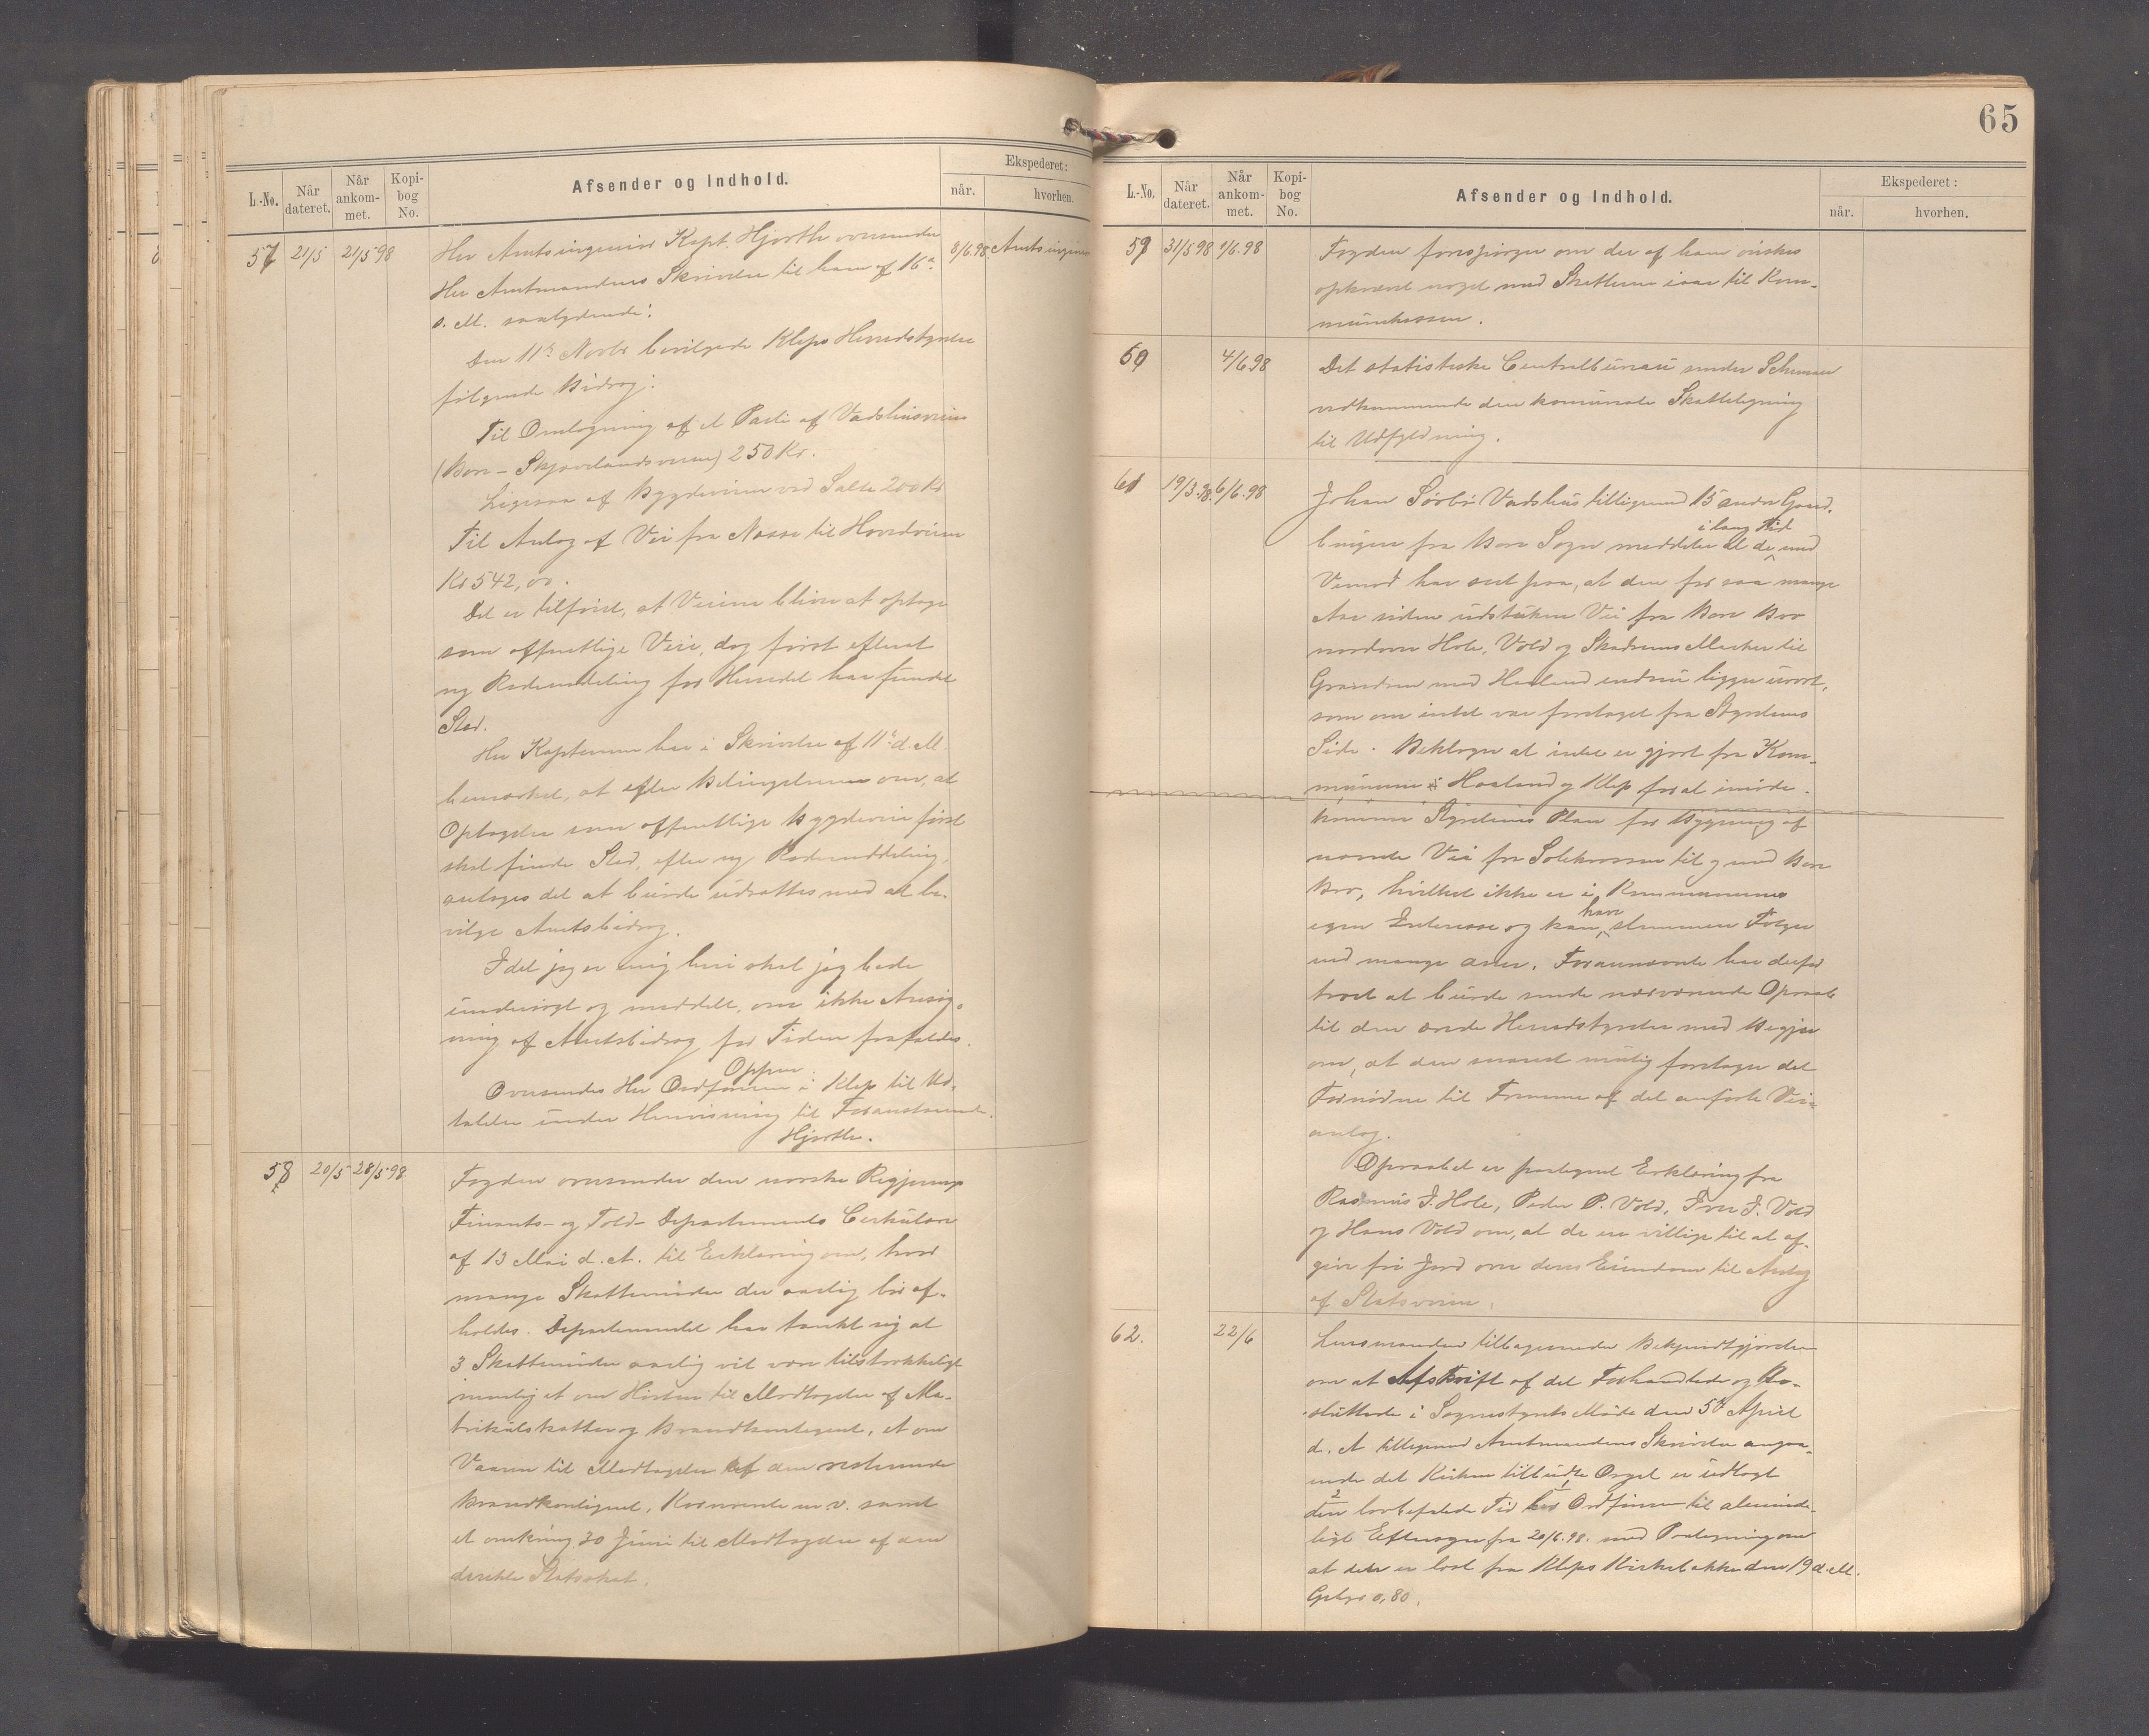 L.-No.
Når dateret.
Når ankom-met.
Kopi-bog No.
Afsender og Indhold.
Ekspederet:
når.
hvorhen.
57 21/5 21/5 98
Hr Amtsingeniør Kapt. Hjorth oversender
8/6.98 Amtsingeniør
Hr Amtmandens Skrivelse til ham af 16de
s. M. saalydende:
Den 11te Novbr bevilgede Klep Herredstyrelse
følgende Bidrag:
Til Omlægning af et Parti af Vadshusveien
(Bore - Skjævelandsveien) 250 Kr.
Ligesaa af Bygdeveien ved Salte 200 Kr
Til Anlæg af Vei fra Næsse til Hovedveien
Kr 542,00.
Det er tilføiet, at Veiene bliver at optage
som offentlige Veie, dog først efterat
ny Rodeinddeling for Herredet har fundet
Sted.
Hr Kapteinen har i Skrivelse af 11te d. M.
bemærket, at efter Betingelserne om, at
Optagelse som offentlige Bygdeveie først
skal finde Sted, efter ny Rodeinddeling,
antages det at burde udsættes med at be-
vilge Amtsbidrag.
Idet jeg er enig heri skal jeg bede
undersøgt og meddelt, om ikke Ansøg-
ning af Amtsbidrag for Tiden frafaldes.
Oppen
Oversendes Hr Ordføreren i Klep til Ud-
talelse under Henvisning til Foranstaaende.
Hjorth.
58 20/5 28/5 98
Fogden oversender den norske Regjerings
Finants- og Told-Departements Cirkulære
af 13 Mai d. A. til Erklæring om, hvor
mange Skattemøder der aarlig bør af-
holdes. Departementet har tænkt sig at
3 Skattemøder aarlig vil være tilstrækkeligt
nemlig et om Høsten til Modtagelse af Ma-
trikulskatten og Brandkontingent, et om
Vaaren til Modtagelse af den resterende
Brandkontingent, Kornrente m. v. samt
et omkring 30 Juni til Modtagelse af den
direkte Statsskat.
65
L.-No.
Når dateret.
Når ankom-met.
Kopi-bog No.
Afsender og Indhold.
Ekspederet:
når.
hvorhen.
59 31/5 98 1/6.98
Fogden forespørger om der af ham ønskes
opkrævet noget med Skatterne iaar til Kom-
munekassen.
60 4/6 98
Det statistiske Centralbureau sender Schemaer
vedkommende den komunale Skatteligning
til Udfyldning.
61 19/3.98. 6/6.98
Johan Sørbø Vadshus tilligemed 15 andre Gaard-
i lang Tid
brugere fra Bore Sogn meddeler at de med
Vemod har seet paa, at den for saa mange
Aar siden udstukne Vei fra Bore Bro
nordover Hole, Vold og Skadsems Marker til
Grændsen med Haaland endnu ligger urørt,
som om intet var foretaget fra Styrelsens
Side. Beklager at intet er gjort fra Kom-
munerne Haaland og Klep for at imøde-
komme Styrelsens Plan for Bygning af
nævnte Vei fra Solekrossen til og med Bore
Bro, hvilket ikke er i Kommunernes
have
egen Interesse og kan slemmere Følger
end mange aner. Forannævnte har derfor
troet at burde sende nærværende Opraab
til den ærede Herredstyrelse med Begjær
om, at den snarest mulig foretager det
Fornødne til Fremme af det anførte Vei-
anlæg.
Opraabet er paategnet Erklæring fra
Rasmus J. Hole, Peder P. Vold, Iver J. Vold
og Hans Vold om, at de er villige til at af-
give fri Jord over deres Eiendom til Anlæg
af Statsveien.
62. 22/6
Lensmanden tilbagesender Bekjendtgjørelse
om at Afskrift af det Forhandlede og Be-
sluttede i Sognestyrets Møde den 5te April
d. A tilligemed Amtmandens Skrivelse angaa-
ende det Kirken tilbudte Orgel er udlagt
den lovbefalede Tid hos Ordføreren til alminde-
ligt Eftersyn fra 20/6.98. med Paategning om
at den er læst fra Klep Kirkebakke den 19 d. M.
Gebyr 0,80.